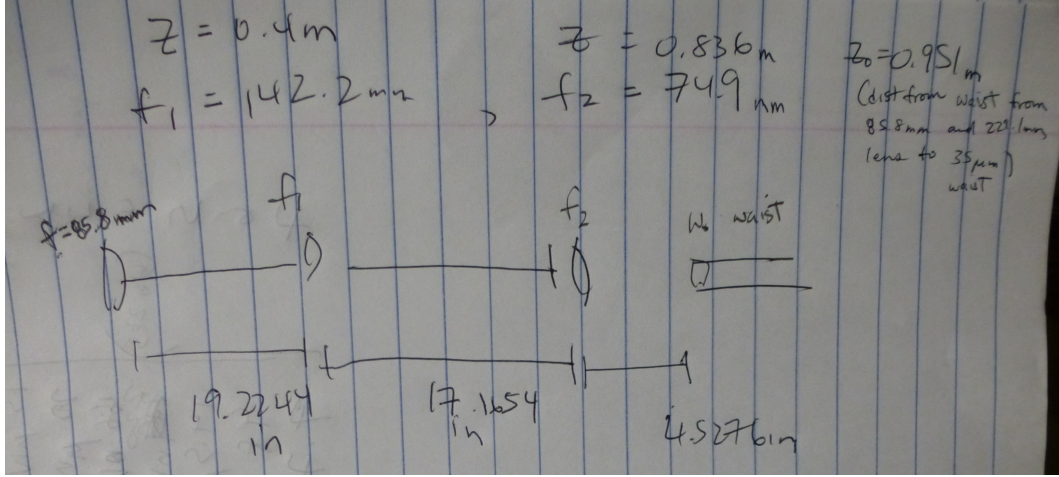 z = 0.4m
f₁ = 142.2 mm ,
z = 0.836 m
f₂ = 74.9 mm
z₀ = 0.951 m
(dist from waist from
85.8mm and 229.1mm
lens to 35μm)
waist
f=85.8mm
f₁
f₂
W₀ waist
19.2244
in
17.1654
in
4.5276in